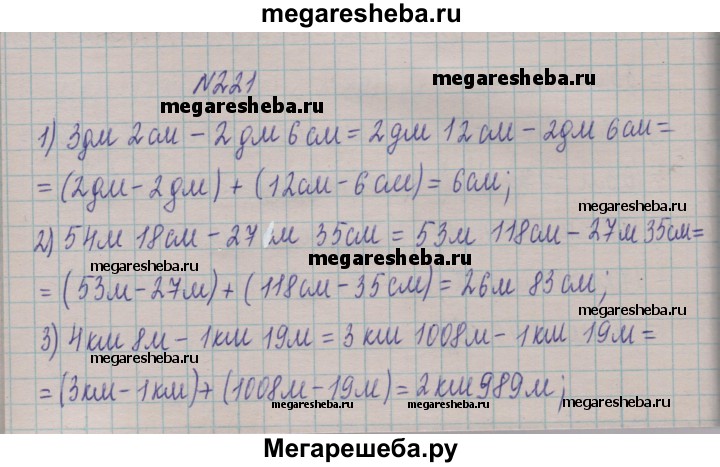 megaresheba.ru
N221
megaresheba.ru
megaresheba.ru
1) 3дм 2см - 2дм 6см = 2дм 12см - 2дм 6см =
= (2дм - 2дм) + (12см - 6см) = 6см;
megaresheba.ru
2) 54м 18см - 27м 35см = 53м 118см - 27м 35см =
megaresheba.ru
megaresheba.ru
= (53м - 27м) + (118см - 35см) = 26м 83см;
megaresheba.ru
3) 4км 8м - 1км 19м = 3км 1008м - 1км 19м =
megaresheba.ru
= (3км - 1км) + (1008м - 19м) = 2км 989м;
megaresheba.ru
megaresheba.ru
megaresheba.ru
Мегарешеба.ру